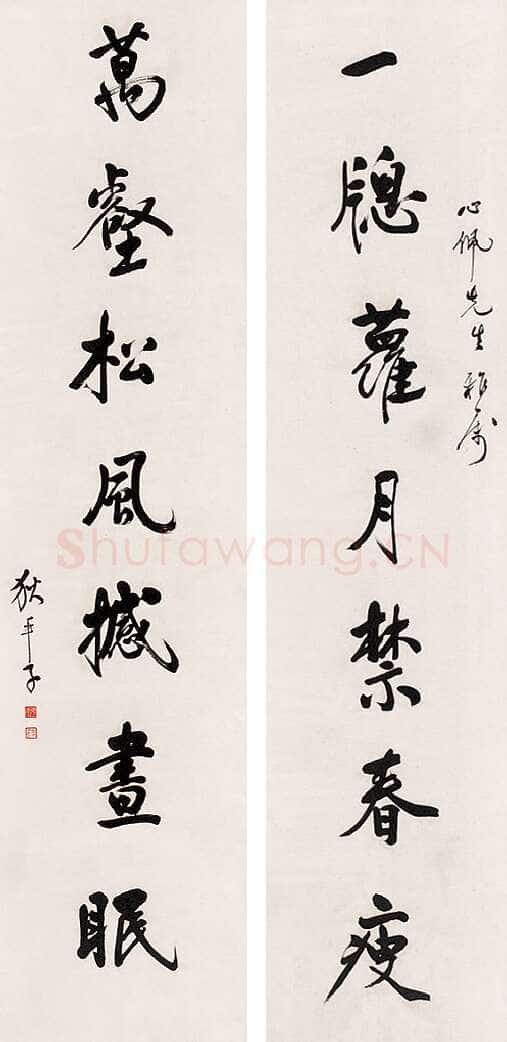 心佩先生雅属
一牕蘿月禁春瘦
萬壑松風撼晝眠
狄平子
Shufawang.CN